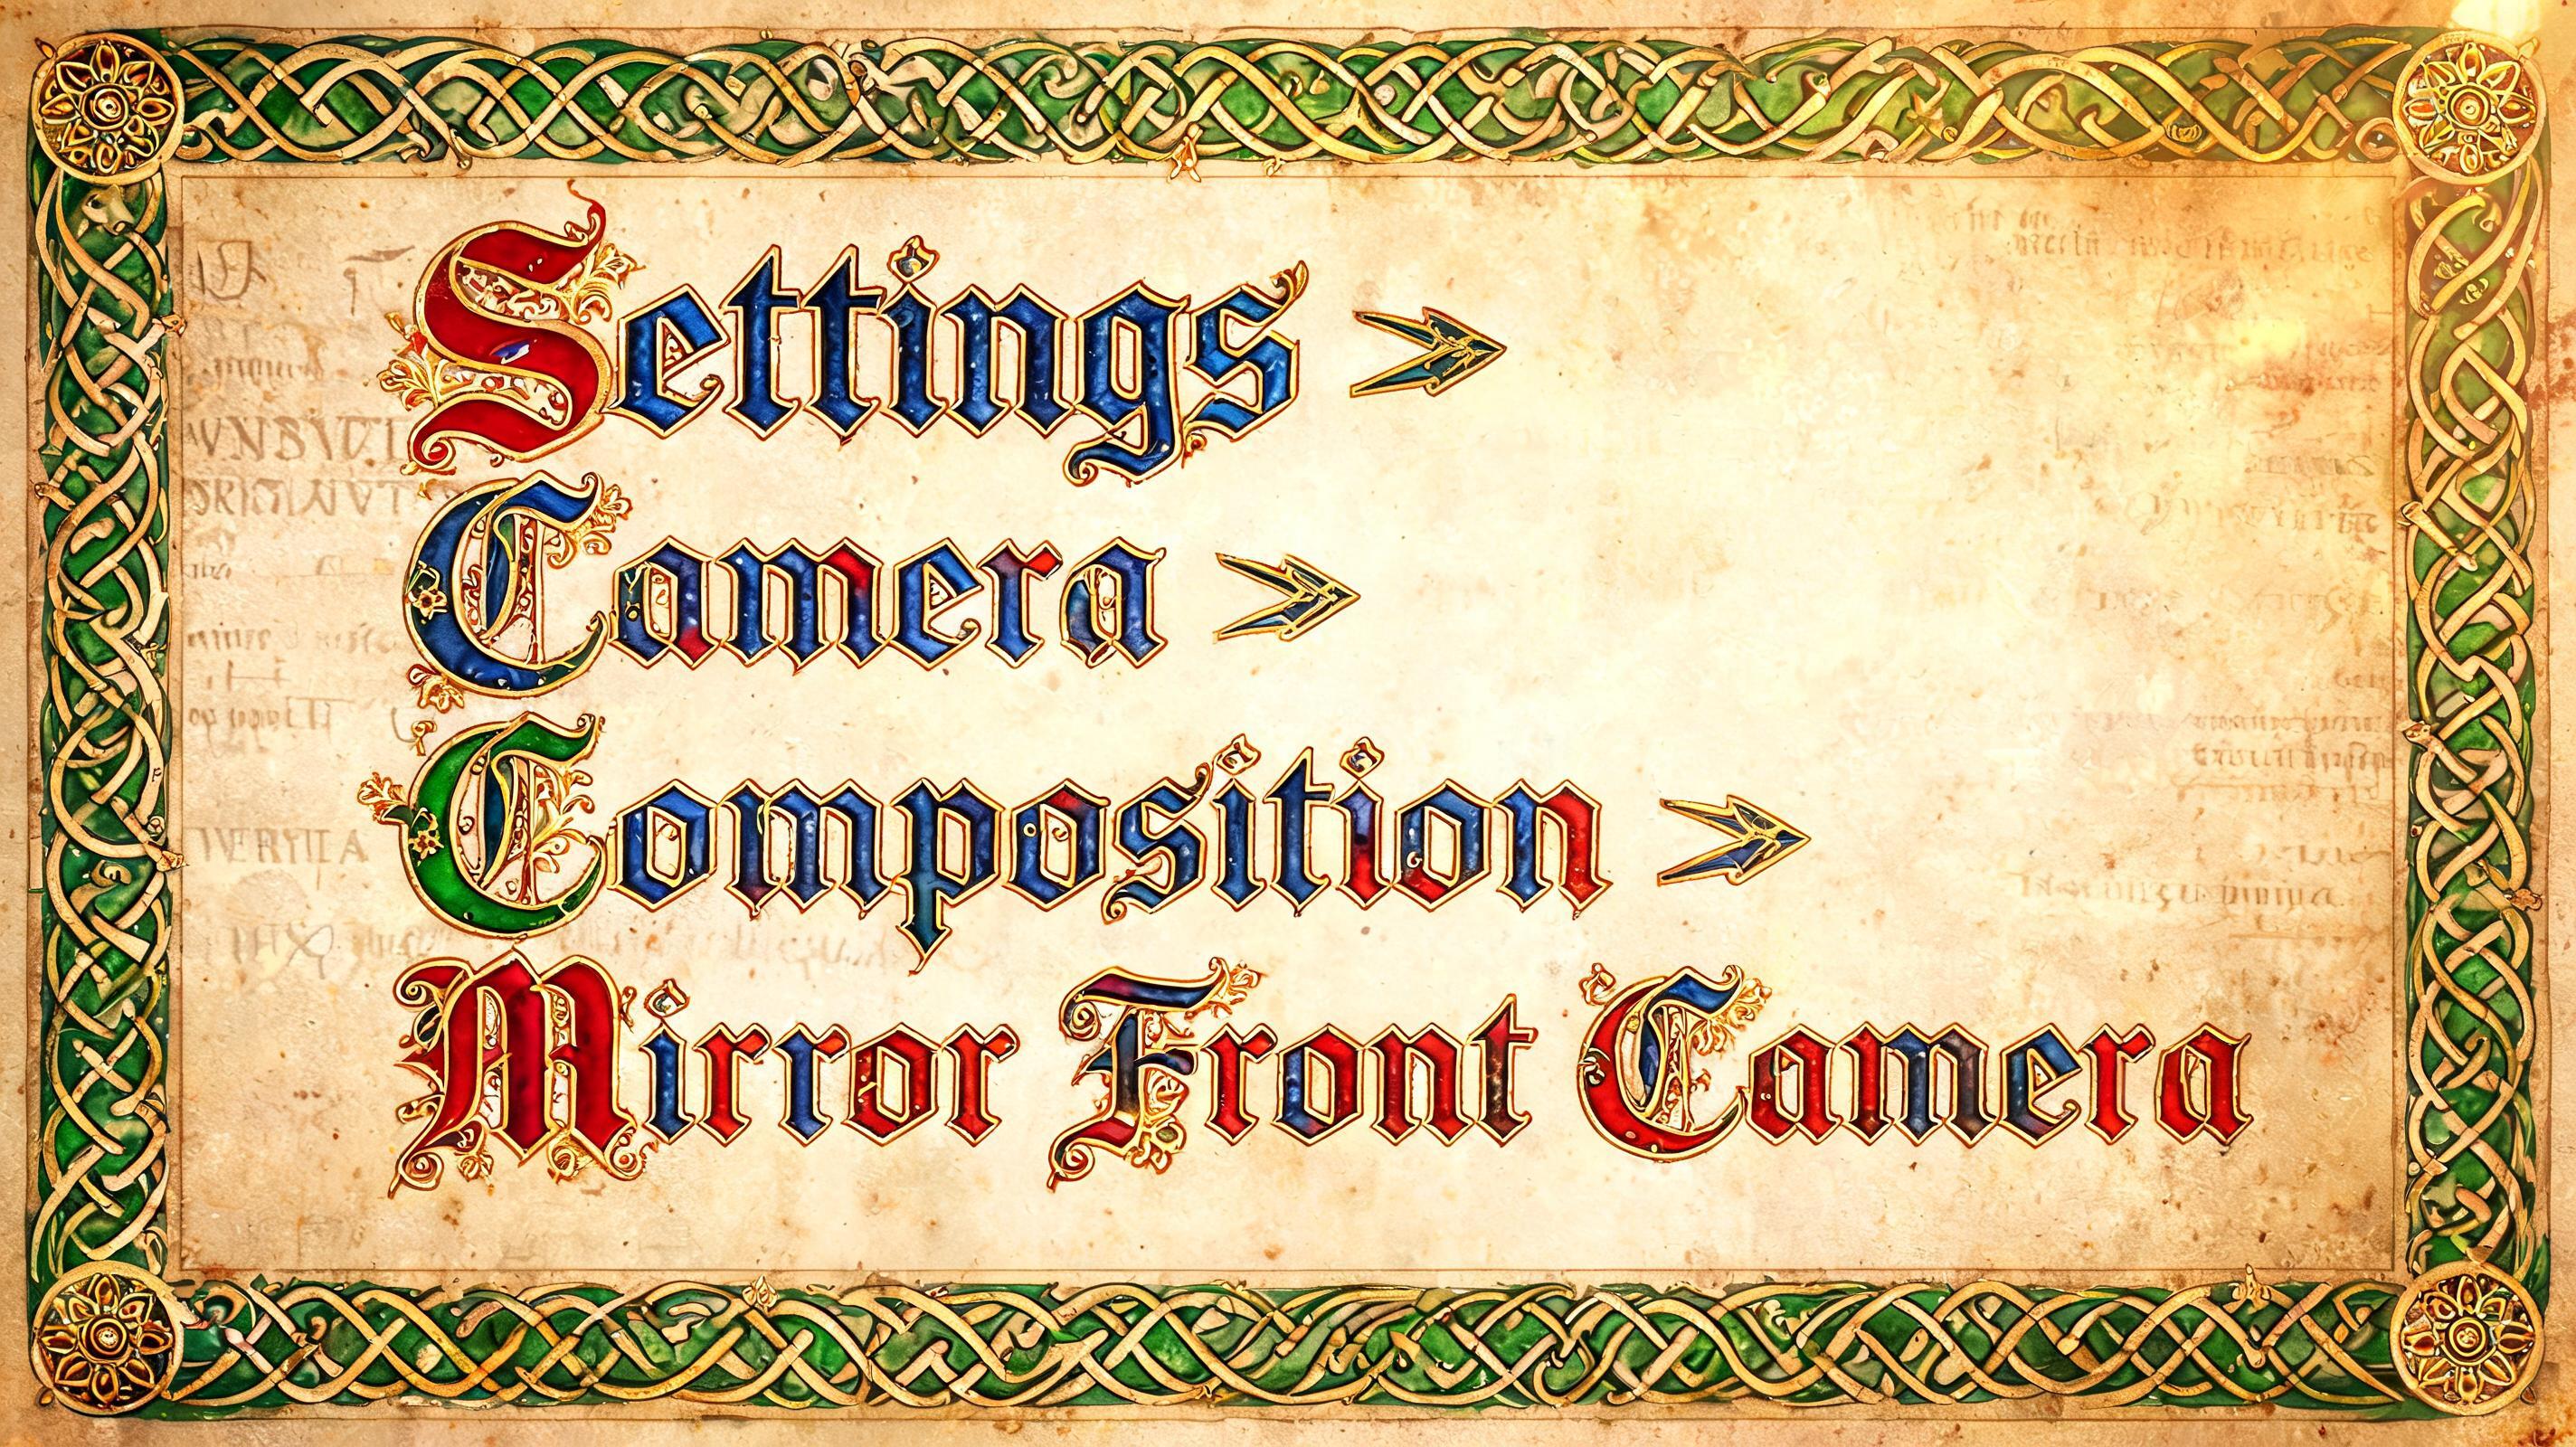 Settings ➣
Camera ➣
Composition ➣
Mirror Front Camera